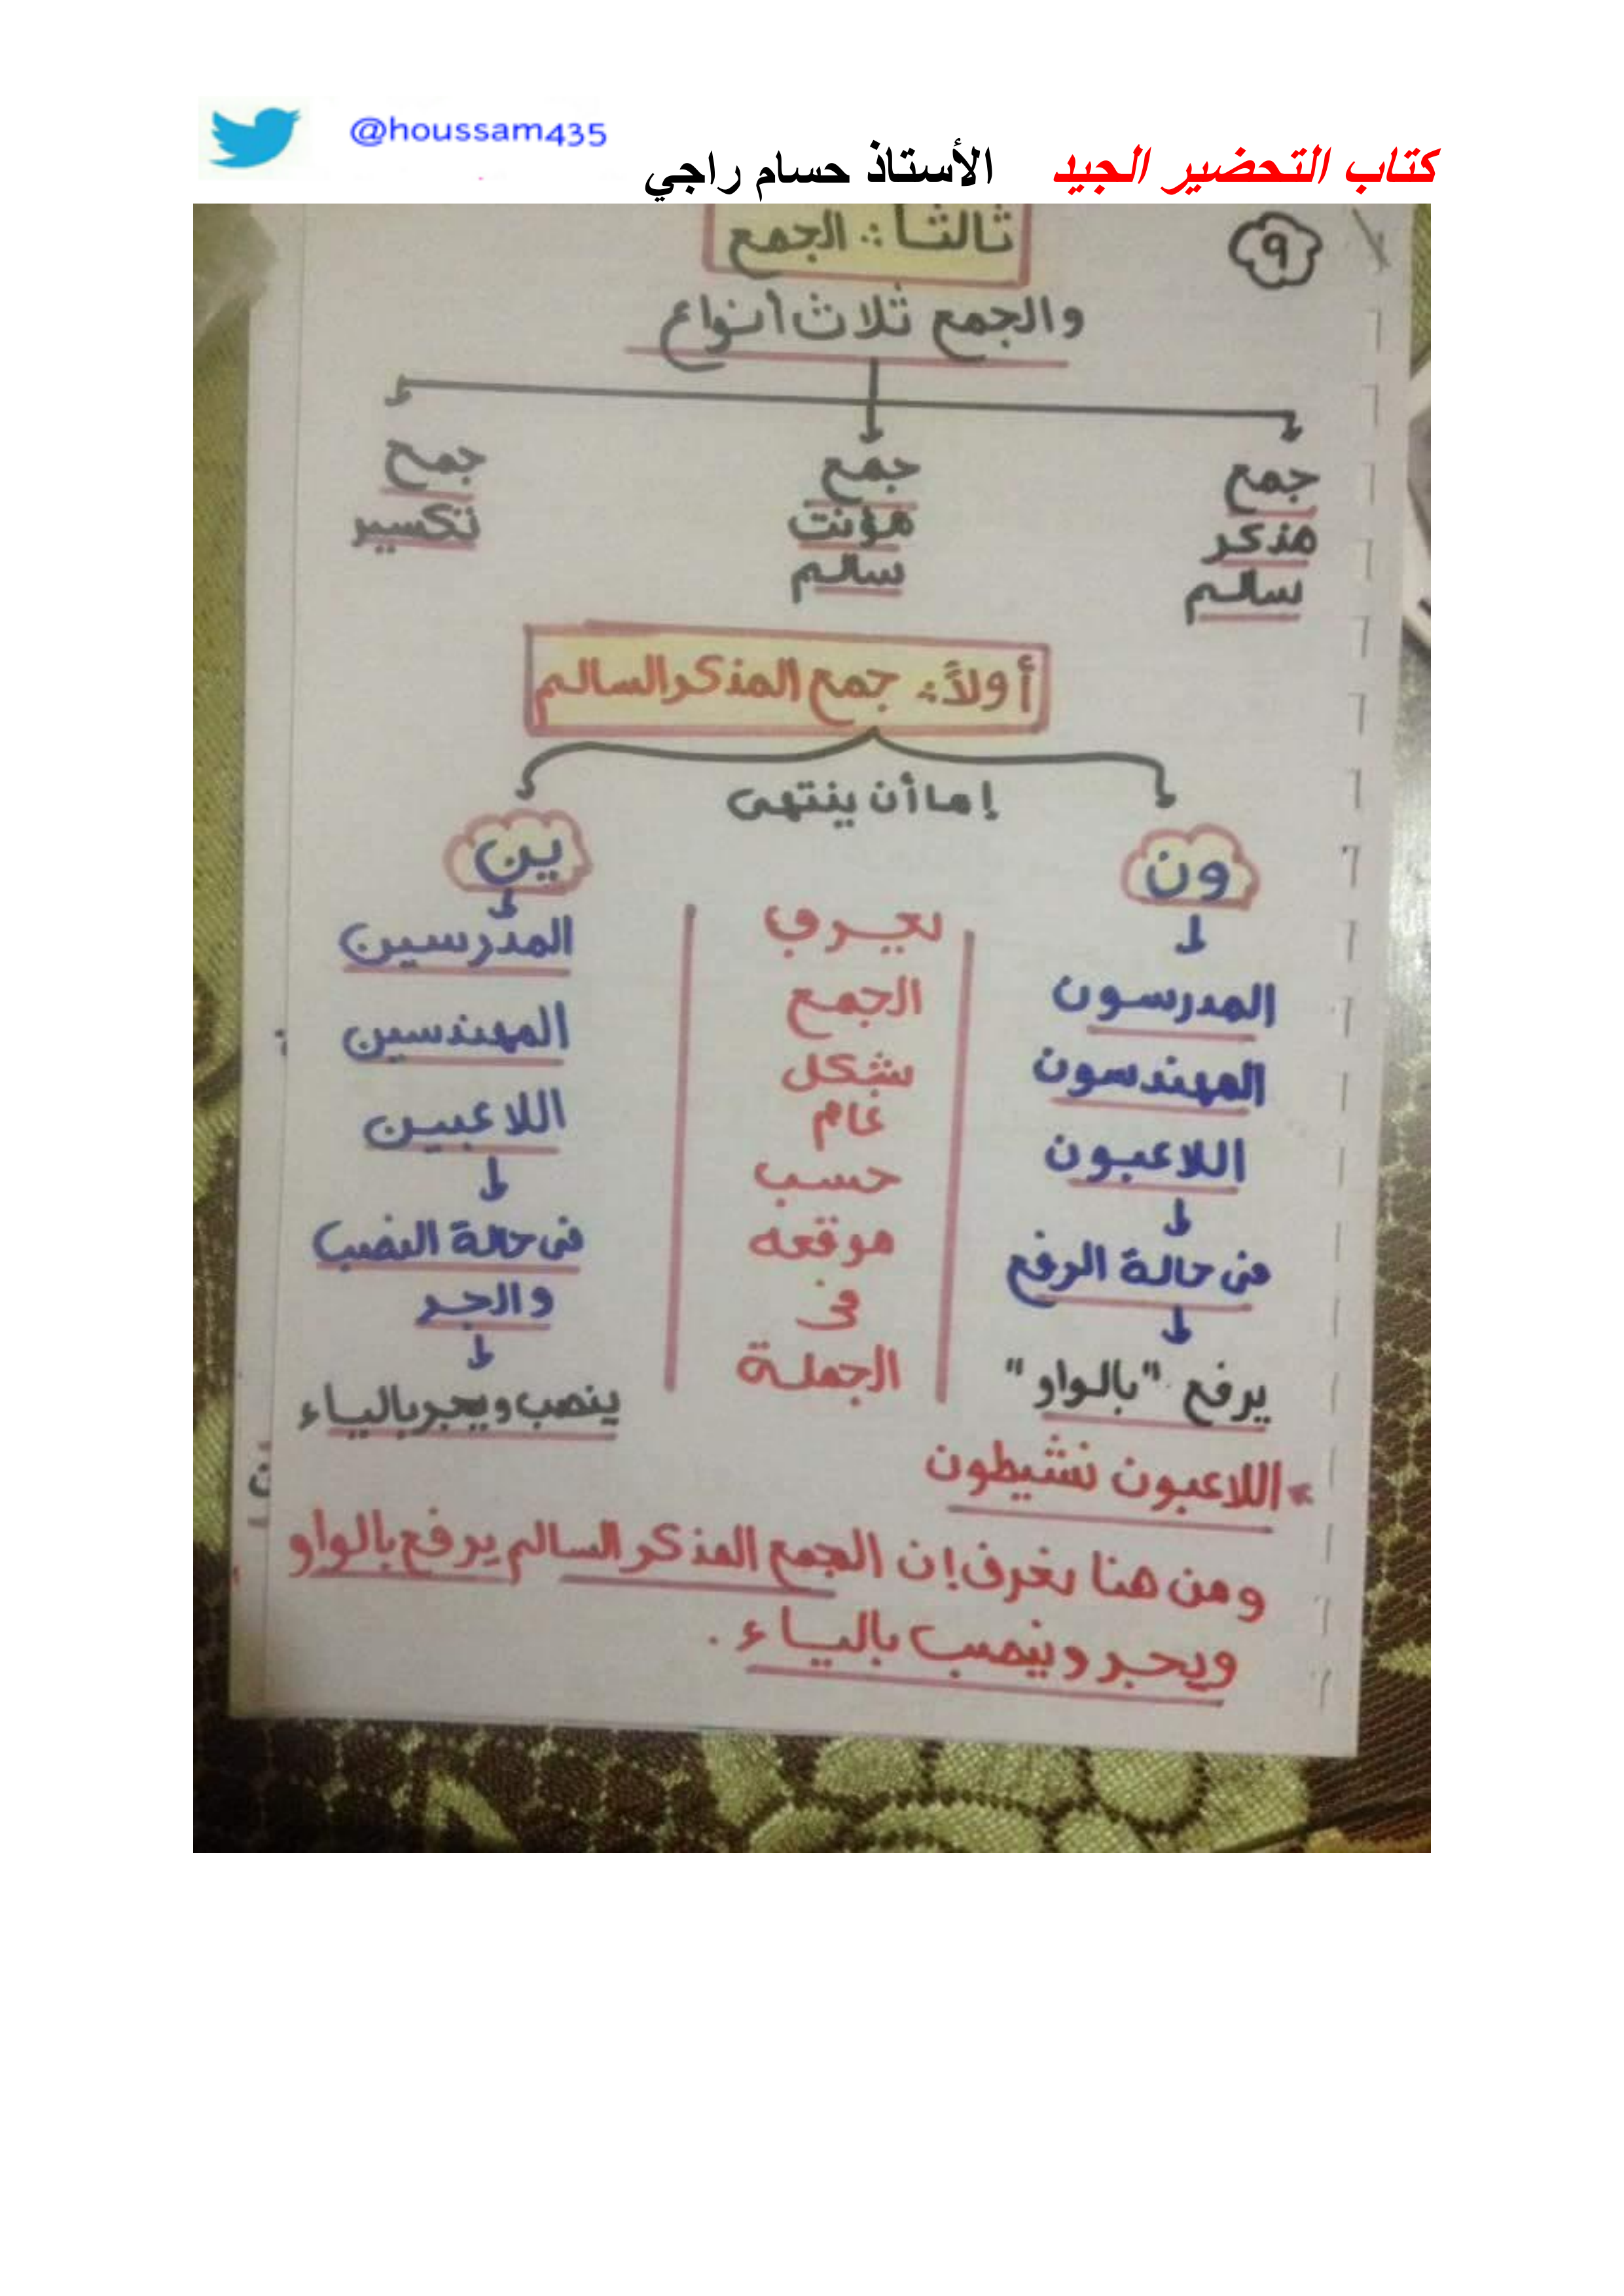 @houssam435
كتاب التحضير الجيد الأستاذ حسام راجي
٩
ثالثاً: الجمع
والجمع ثلاث أنواع
جمع مذكر سالم
جمع مؤنث سالم
جمع تكسير
أولاً: جمع المذكر السالم
إما أن ينتهى
ون
المدرسون
المهندسون
اللاعبون
فى حالة الرفع
يرفع "بالواو"
يعرب
الجمع
بشكل
عام
حسب
موقعه
فى
الجملة
ين
المدرسين
المهندسين
اللاعبين
فى حالة النصب
والجر
ينصب ويجر بالياء
اللاعبون نشيطون
ومن هنا نعرف إن الجمع المذكر السالم يرفع بالواو
ويجر وينصب بالياء.